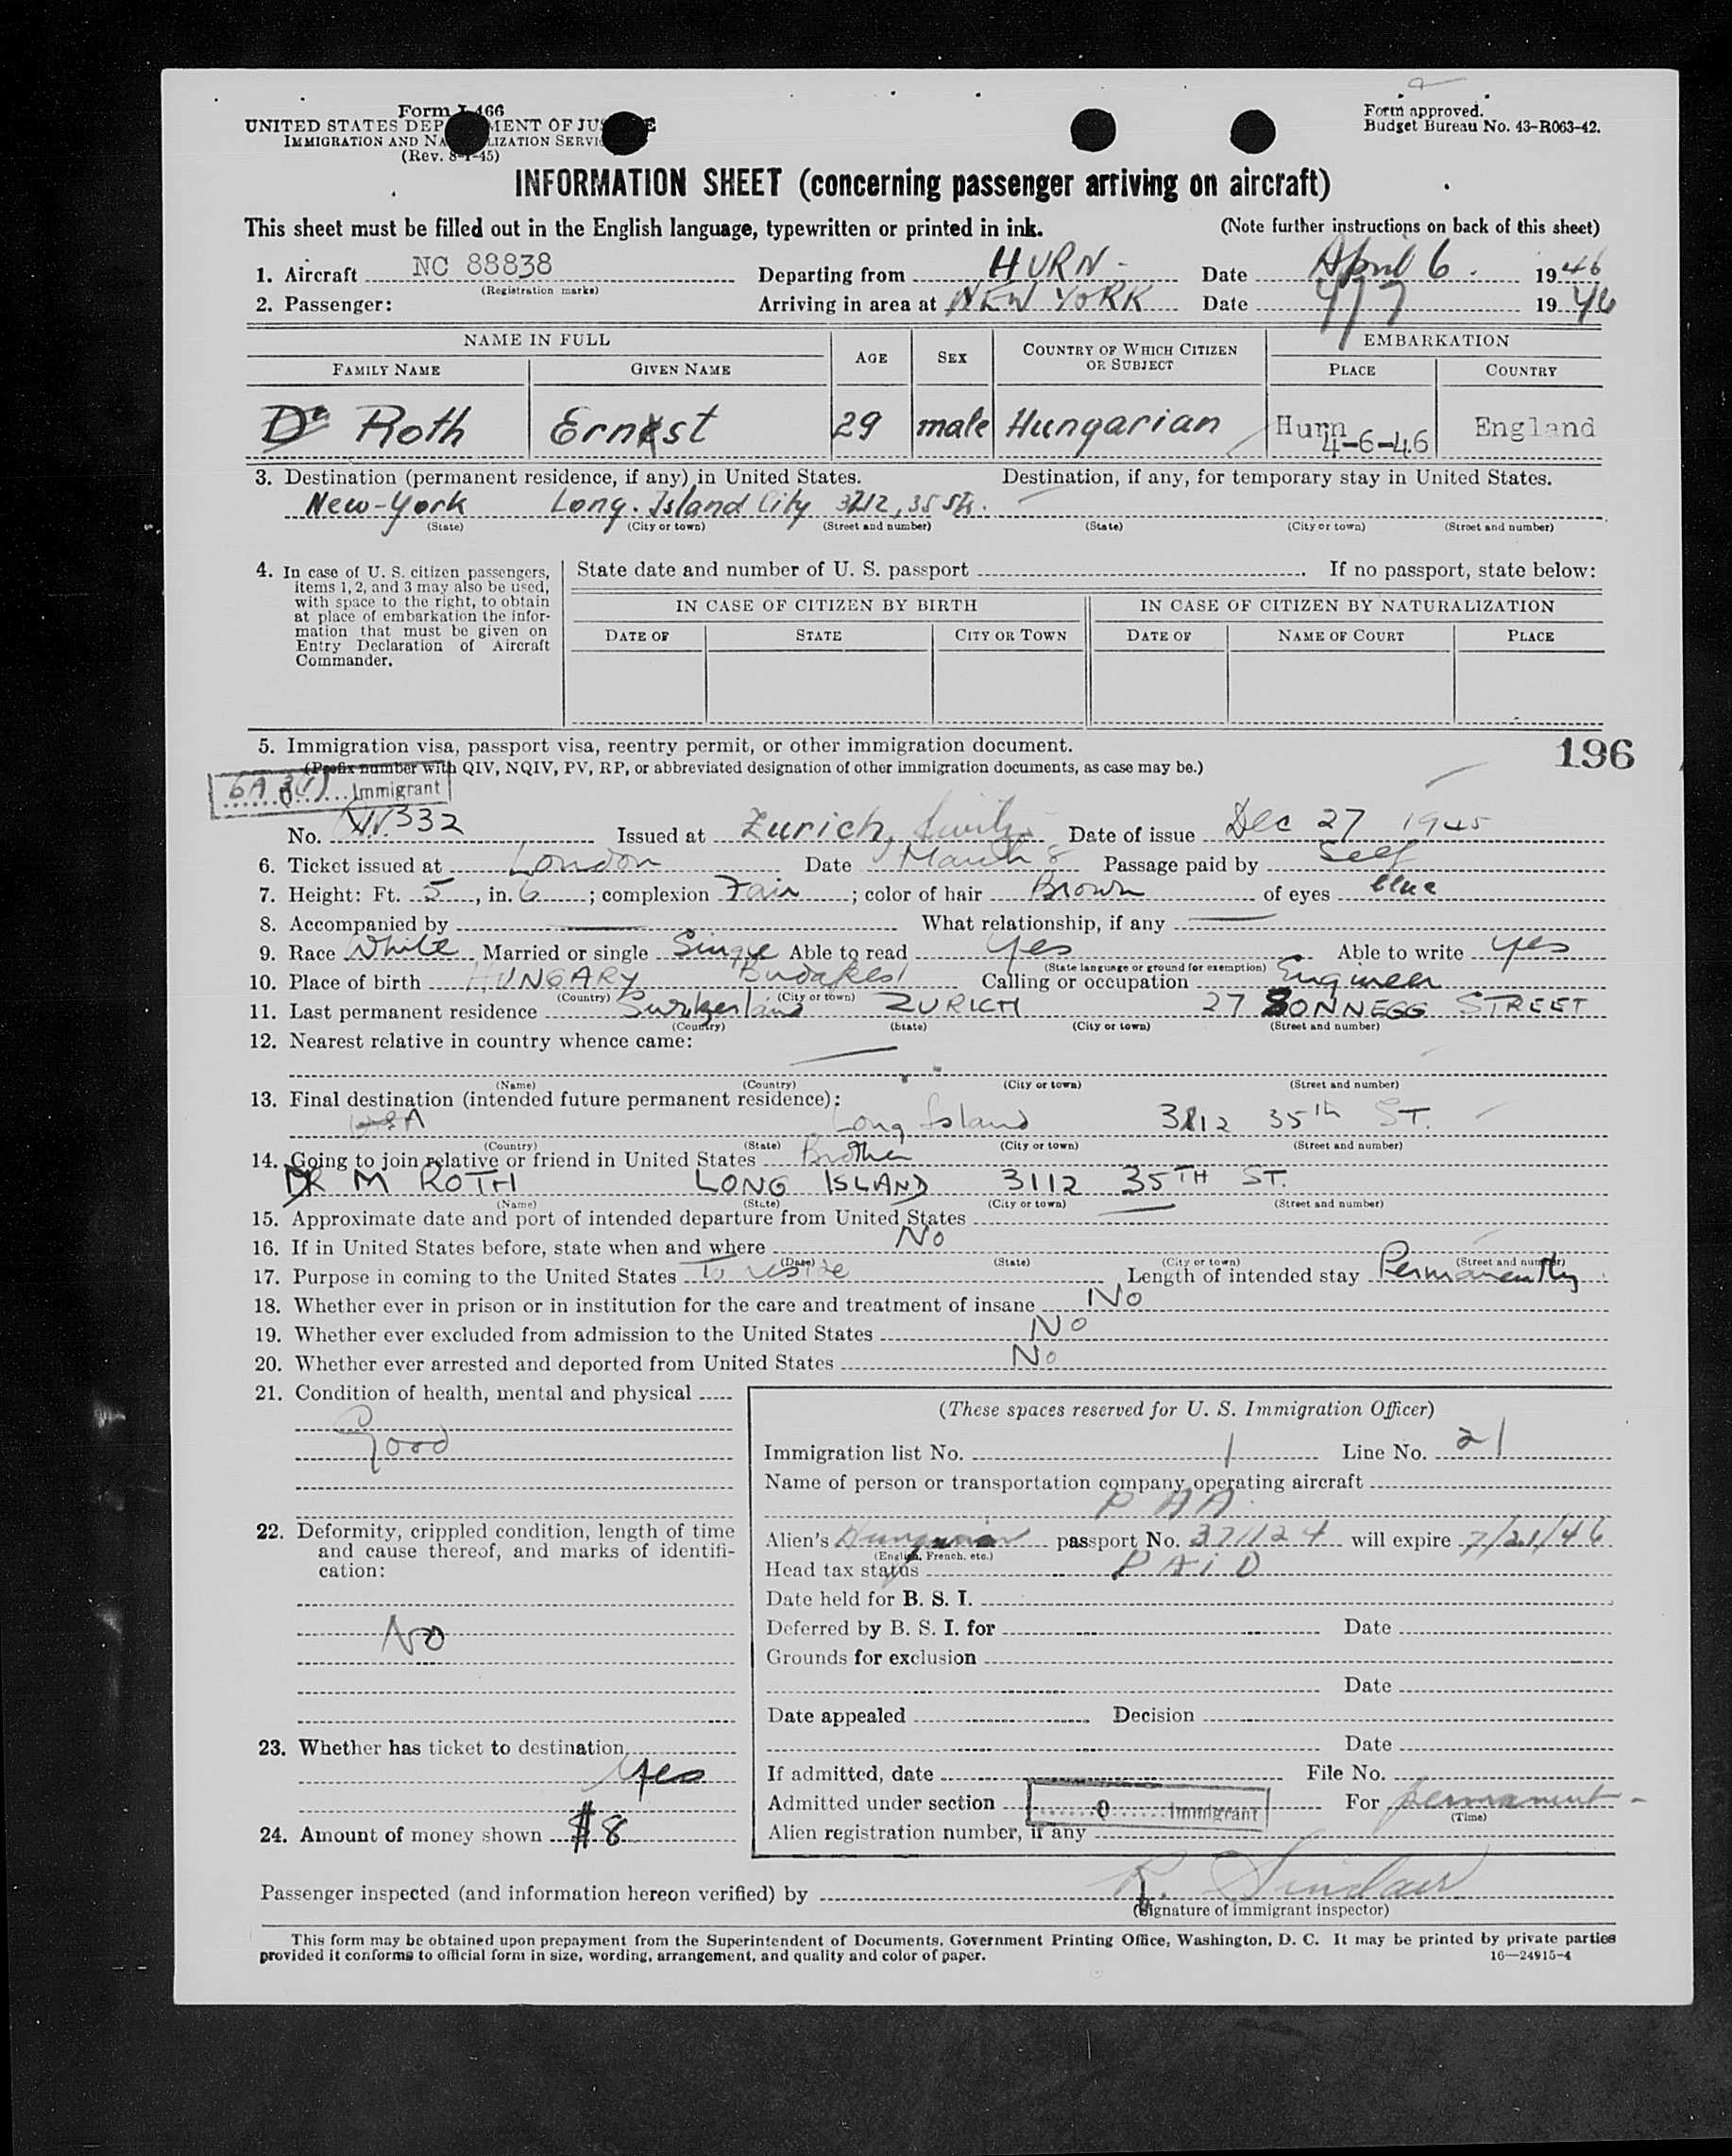 Form I-466
UNITED STATES DEP MENT OF JUS E
IMMIGRATION AND NA LIZATION SERVI
(Rev. 8-1-45)
Form approved.
Budget Bureau No. 43-R063-42.
INFORMATION SHEET (concerning passenger arriving on aircraft)
This sheet must be filled out in the English language, typewritten or printed in ink. (Note further instructions on back of this sheet)
1. Aircraft NC 88838 Departing from HURN - Date April 6. 1946
(Registration marks)
2. Passenger: Arriving in area at NEW YORK Date 4/7 1946
NAME IN FULL AGE SEX COUNTRY OF WHICH CITIZEN OR SUBJECT EMBARKATION
FAMILY NAME GIVEN NAME PLACE COUNTRY
Dr Roth Ernest 29 male Hungarian Hurn 4-6-46 England
3. Destination (permanent residence, if any) in United States. Destination, if any, for temporary stay in United States.
New-York Long. Island City 3212, 35 Str.
(State) (City or town) (Street and number) (State) (City or town) (Street and number)
4. In case of U. S. citizen passengers, items 1, 2, and 3 may also be used, with space to the right, to obtain at place of embarkation the information that must be given on Entry Declaration of Aircraft Commander.
State date and number of U. S. passport . If no passport, state below:
IN CASE OF CITIZEN BY BIRTH IN CASE OF CITIZEN BY NATURALIZATION
DATE OF STATE CITY OR TOWN DATE OF NAME OF COURT PLACE
5. Immigration visa, passport visa, reentry permit, or other immigration document. 196
(Prefix number with QIV, NQIV, PV, RP, or abbreviated designation of other immigration documents, as case may be.)
6A 3(1) 0 Immigrant
No. 332 Issued at Zurich, Switz. Date of issue Dec 27 1945
6. Ticket issued at London Date March 8 Passage paid by Self
7. Height: Ft. 5, in. 6; complexion Fair; color of hair Brown of eyes blue
8. Accompanied by — What relationship, if any —
9. Race White Married or single Single Able to read yes Able to write yes
(State language or ground for exemption)
10. Place of birth HUNGARY Budapest Calling or occupation Engineer
(Country) (City or town)
11. Last permanent residence Switzerland ZURICH 27 SONNEGG STREET
(Country) (State) (City or town) (Street and number)
12. Nearest relative in country whence came:
—
(Name) (Country) (City or town) (Street and number)
13. Final destination (intended future permanent residence):
USA Long Island 3112 35th ST.
(Country) (State) (City or town) (Street and number)
14. Going to join relative or friend in United States Brother
DR M ROTH LONG ISLAND 3112 35TH ST.
(Name) (State) (City or town) (Street and number)
15. Approximate date and port of intended departure from United States —
16. If in United States before, state when and where No
(Date) (State) (City or town) (Street and number)
17. Purpose in coming to the United States To reside Length of intended stay Permanently
18. Whether ever in prison or in institution for the care and treatment of insane No
19. Whether ever excluded from admission to the United States No
20. Whether ever arrested and deported from United States No
21. Condition of health, mental and physical
Good
22. Deformity, crippled condition, length of time and cause thereof, and marks of identification:
No
23. Whether has ticket to destination
Yes
24. Amount of money shown $8
(These spaces reserved for U. S. Immigration Officer)
Immigration list No. 1 Line No. 21
Name of person or transportation company operating aircraft
PAA
Alien's Hungarian passport No. 371124 will expire 7/21/46
(English, French, etc.)
Head tax status PAID
Date held for B. S. I.
Deferred by B. S. I. for Date
Grounds for exclusion
Date
Date appealed Decision
Date
If admitted, date File No.
Admitted under section 0 Immigrant For permanent -
(Time)
Alien registration number, if any
Passenger inspected (and information hereon verified) by R. Sinclair
(Signature of immigrant inspector)
This form may be obtained upon prepayment from the Superintendent of Documents, Government Printing Office, Washington, D. C. It may be printed by private parties
provided it conforms to official form in size, wording, arrangement, and quality and color of paper. 16—24915-4